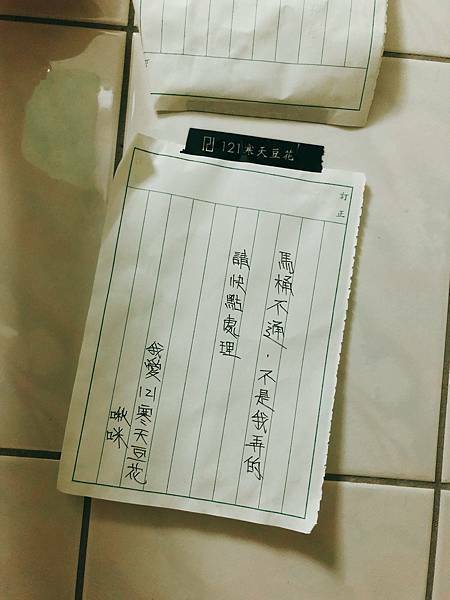 121寒天豆花
訂正
馬桶不通,不是我弄的
請快點處理
我愛121寒天豆花
啾咪